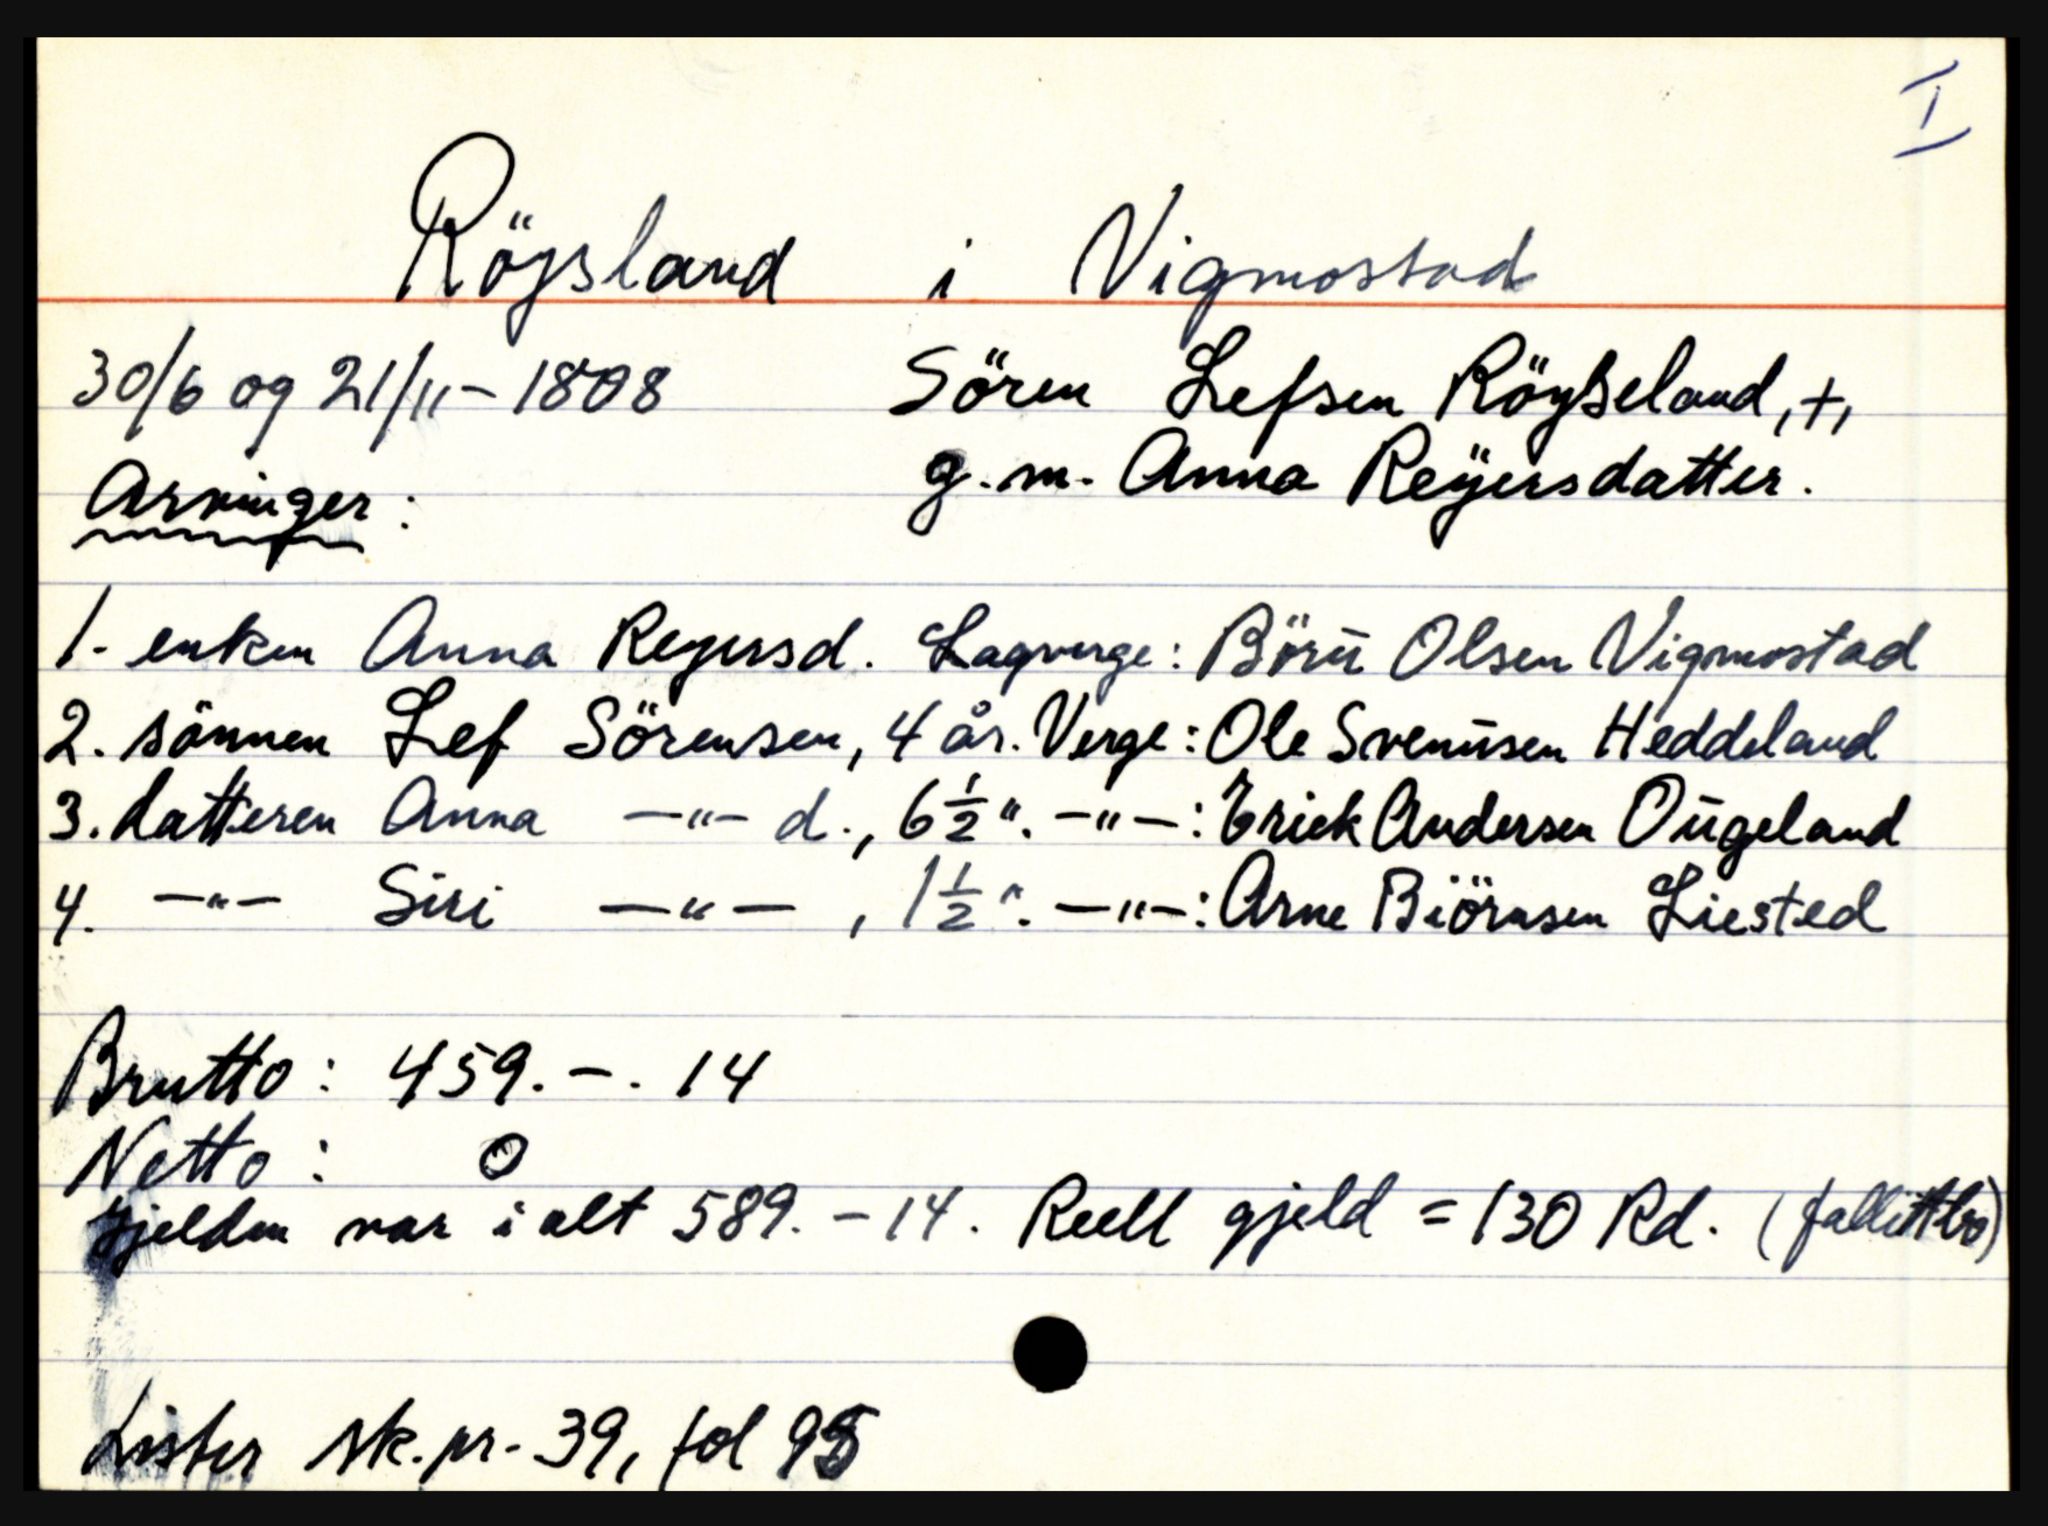 I
Röysland i Vigmostad
30/6 og 21/11 - 1808 Sören Lefsen Röyßeland, +,
g. m. Anna Reÿersdatter.
Arvinger:
1. enken Anna Reyersd. Lagverge: Börü Olsen Vigmostad
2. sönnen Lef Sörensen, 4 år. Verge: Ole Svenüsen Heddeland
3. datteren Anna —"— d., 6½ ". —"—: Erick Andersen Oügeland
4. —"— Siri —"—, 1½ ". —"—: Arne Biörnsen Liested
Brutto: 459. -. 14
Netto: 0
Gjelden var i alt 589. - 14. Reell gjeld = 130 Rd. (fallittbo)
Lister sk. pr. 39, fol